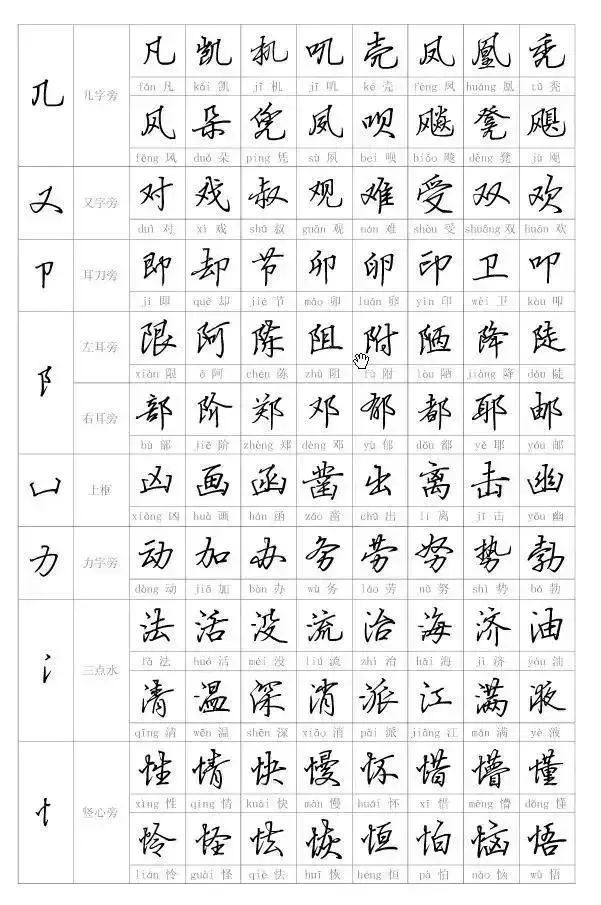 几 几字旁 凡 凯 机 叽 壳 凤 凰 秃
fán 凡 kǎi 凯 jī 机 jī 叽 ké 壳 fèng 凤 huáng 凰 tū 秃
风 朵 凭 夙 呗 飚 凳 飓
fēng 风 duǒ 朵 píng 凭 sù 夙 bei 呗 biāo 飚 dèng 凳 jù 飓
又 又字旁 对 戏 叔 观 难 受 双 欢
duì 对 xì 戏 shū 叔 guān 观 nán 难 shòu 受 shuāng 双 huān 欢
卩 耳刀旁 即 却 节 卯 卵 印 卫 叩
jí 即 què 却 jié 节 mǎo 卯 luǎn 卵 yìn 印 wèi 卫 kòu 叩
阝 左耳旁 限 阿 陈 阻 附 陋 降 陡
xiàn 限 ā 阿 chén 陈 zhǔ 阻 fù 附 lòu 陋 jiàng 降 dǒu 陡
右耳旁 部 阶 郑 邓 郁 都 耶 邮
bù 部 jiē 阶 zhèng 郑 dèng 邓 yù 郁 dōu 都 yē 耶 yóu 邮
凵 上框 凶 画 函 凿 出 离 击 幽
xiōng 凶 huà 画 hán 函 záo 凿 chū 出 lí 离 jī 击 yōu 幽
力 力字旁 动 加 办 务 劳 努 势 勃
dòng 动 jiā 加 bàn 办 wù 务 láo 劳 nǔ 努 shì 势 bó 勃
氵 三点水 法 活 没 流 治 海 济 油
fǎ 法 huó 活 méi 没 liú 流 zhì 治 hǎi 海 jì 济 yóu 油
清 温 深 消 派 江 满 液
qīng 清 wēn 温 shēn 深 xiāo 消 pài 派 jiāng 江 mǎn 满 yè 液
忄 竖心旁 性 情 快 慢 怀 惜 懵 懂
xìng 性 qíng 情 kuài 快 màn 慢 huái 怀 xī 惜 měng 懵 dǒng 懂
怜 怪 怯 恢 恒 怕 恼 悟
lián 怜 guài 怪 qiè 怯 huī 恢 héng 恒 pà 怕 nǎo 恼 wù 悟